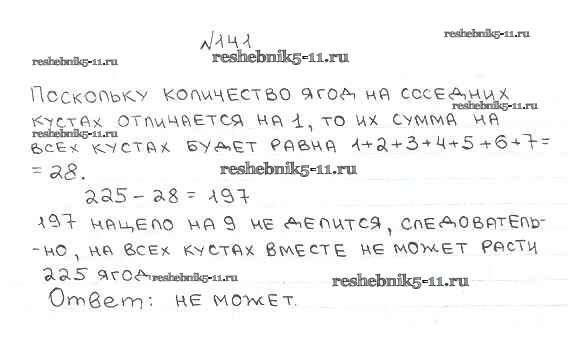 №141
reshebnik5-11.ru
reshebnik5-11.ru
reshebnik5-11.ru
Поскольку количество ягод на соседних
reshebnik5-11.ru
кустах отличается на 1, то их сумма на
reshebnik5-11.ru
всех кустах будет равна 1+2+3+4+5+6+7=
= 28.
reshebnik5-11.ru
225 - 28 = 197
197 нацело на 9 не делится, следователь-
-но, на всех кустах вместе не может расти
225 ягод
reshebnik5-11.ru
reshebnik5-11.ru
Ответ: не может.